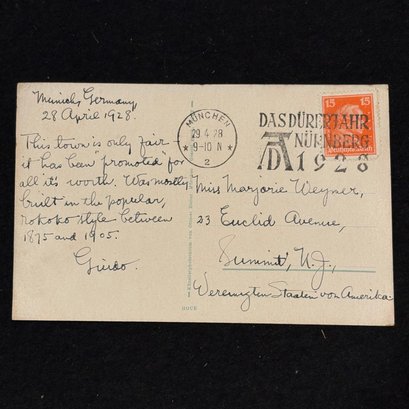 Munich, Germany
28 April 1928.
This town is only fair
it has been promoted for
all it's worth. Was mostly
built in the popular,
rokoko style between
1875 and 1905.
Guido.
MÜNCHEN
29.4.28
9-10 N
2
DAS DÜRERJAHR
NÜRNBERG
AD 1928
15 15
Deutsches Reich
Miss Marjorie Weymer,
23 Euclid Avenue,
Summit, N.J.,
Vereinigten Staaten von Amerika.
HUCH